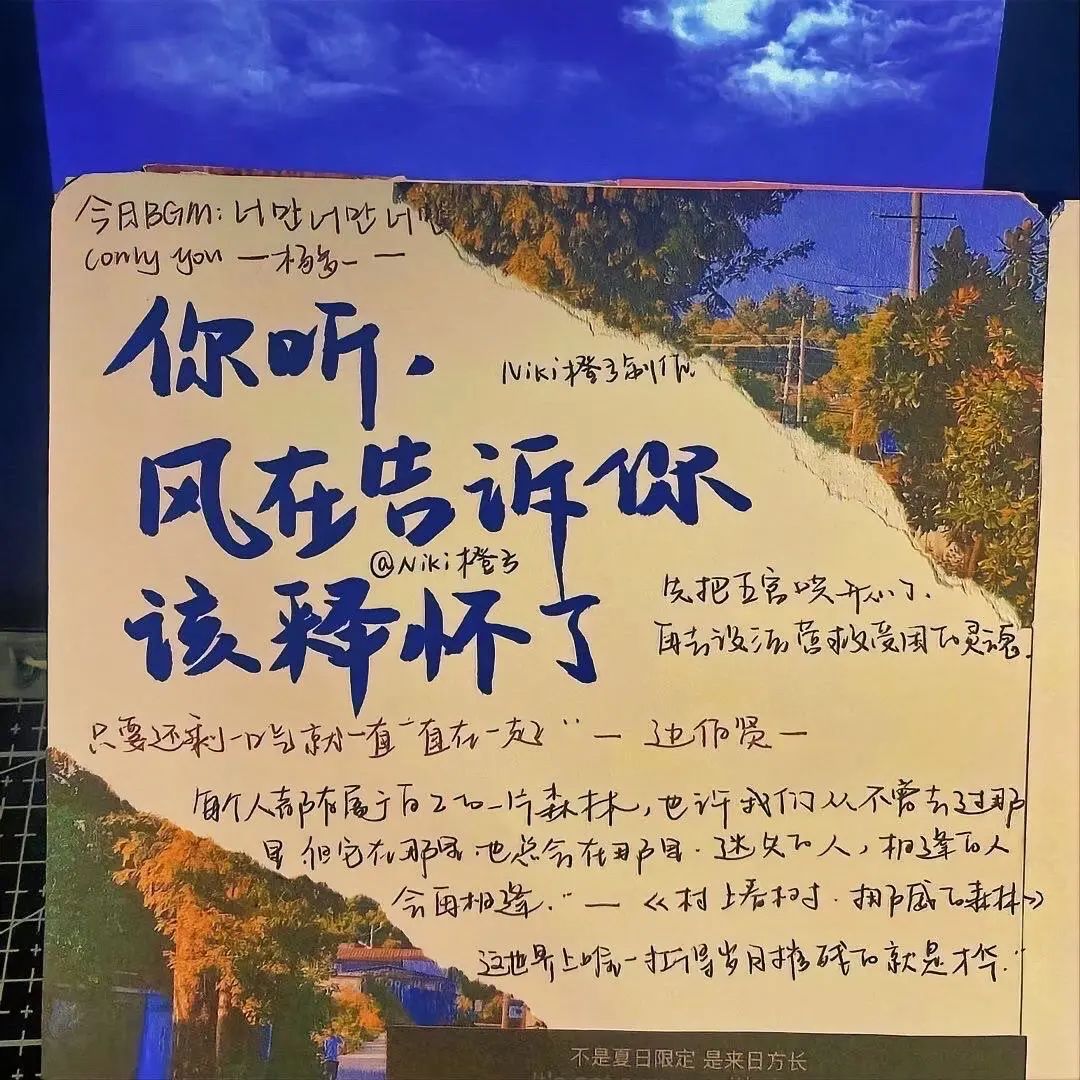 今日BGM:너만너만너만
conly you 一杨多一 一
你听,
Niki橙子制作
风在告诉你
@Niki橙子
该释怀了
先把五官哄开心了、
再去设法营救受困的灵魂.
只要还剩一口气就一直"直在一起" — 边伯贤 —
每个人都有属于自己的一片森林,也许我们从不曾去过那
里 但它在那里.也总会在那里.迷失的人,相逢的人
会再相逢." — 《村上春树.挪威的森林》
这世界上唯一扛得岁月摧残的就是才华."
不是夏日限定 是来日方长